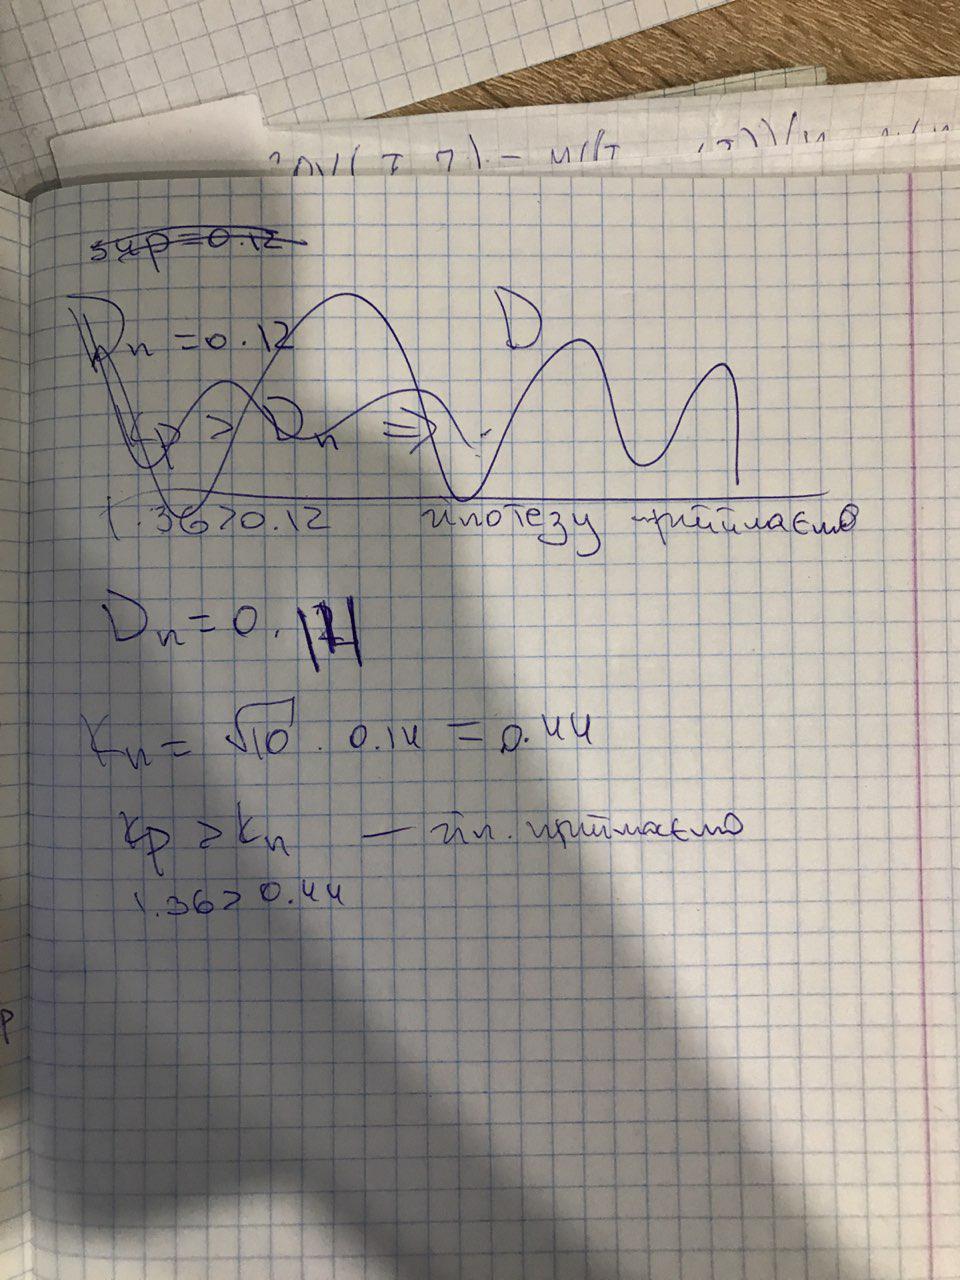 sup=0.12
Dn = 0.12
Kp > Dn =>
D
1.36>0.12 гіпотезу приймаємо
Dn = 0.14
Kn = √10 . 0.14 = 0.44
Kp > Kn — гіп. приймаємо
1.36> 0.44